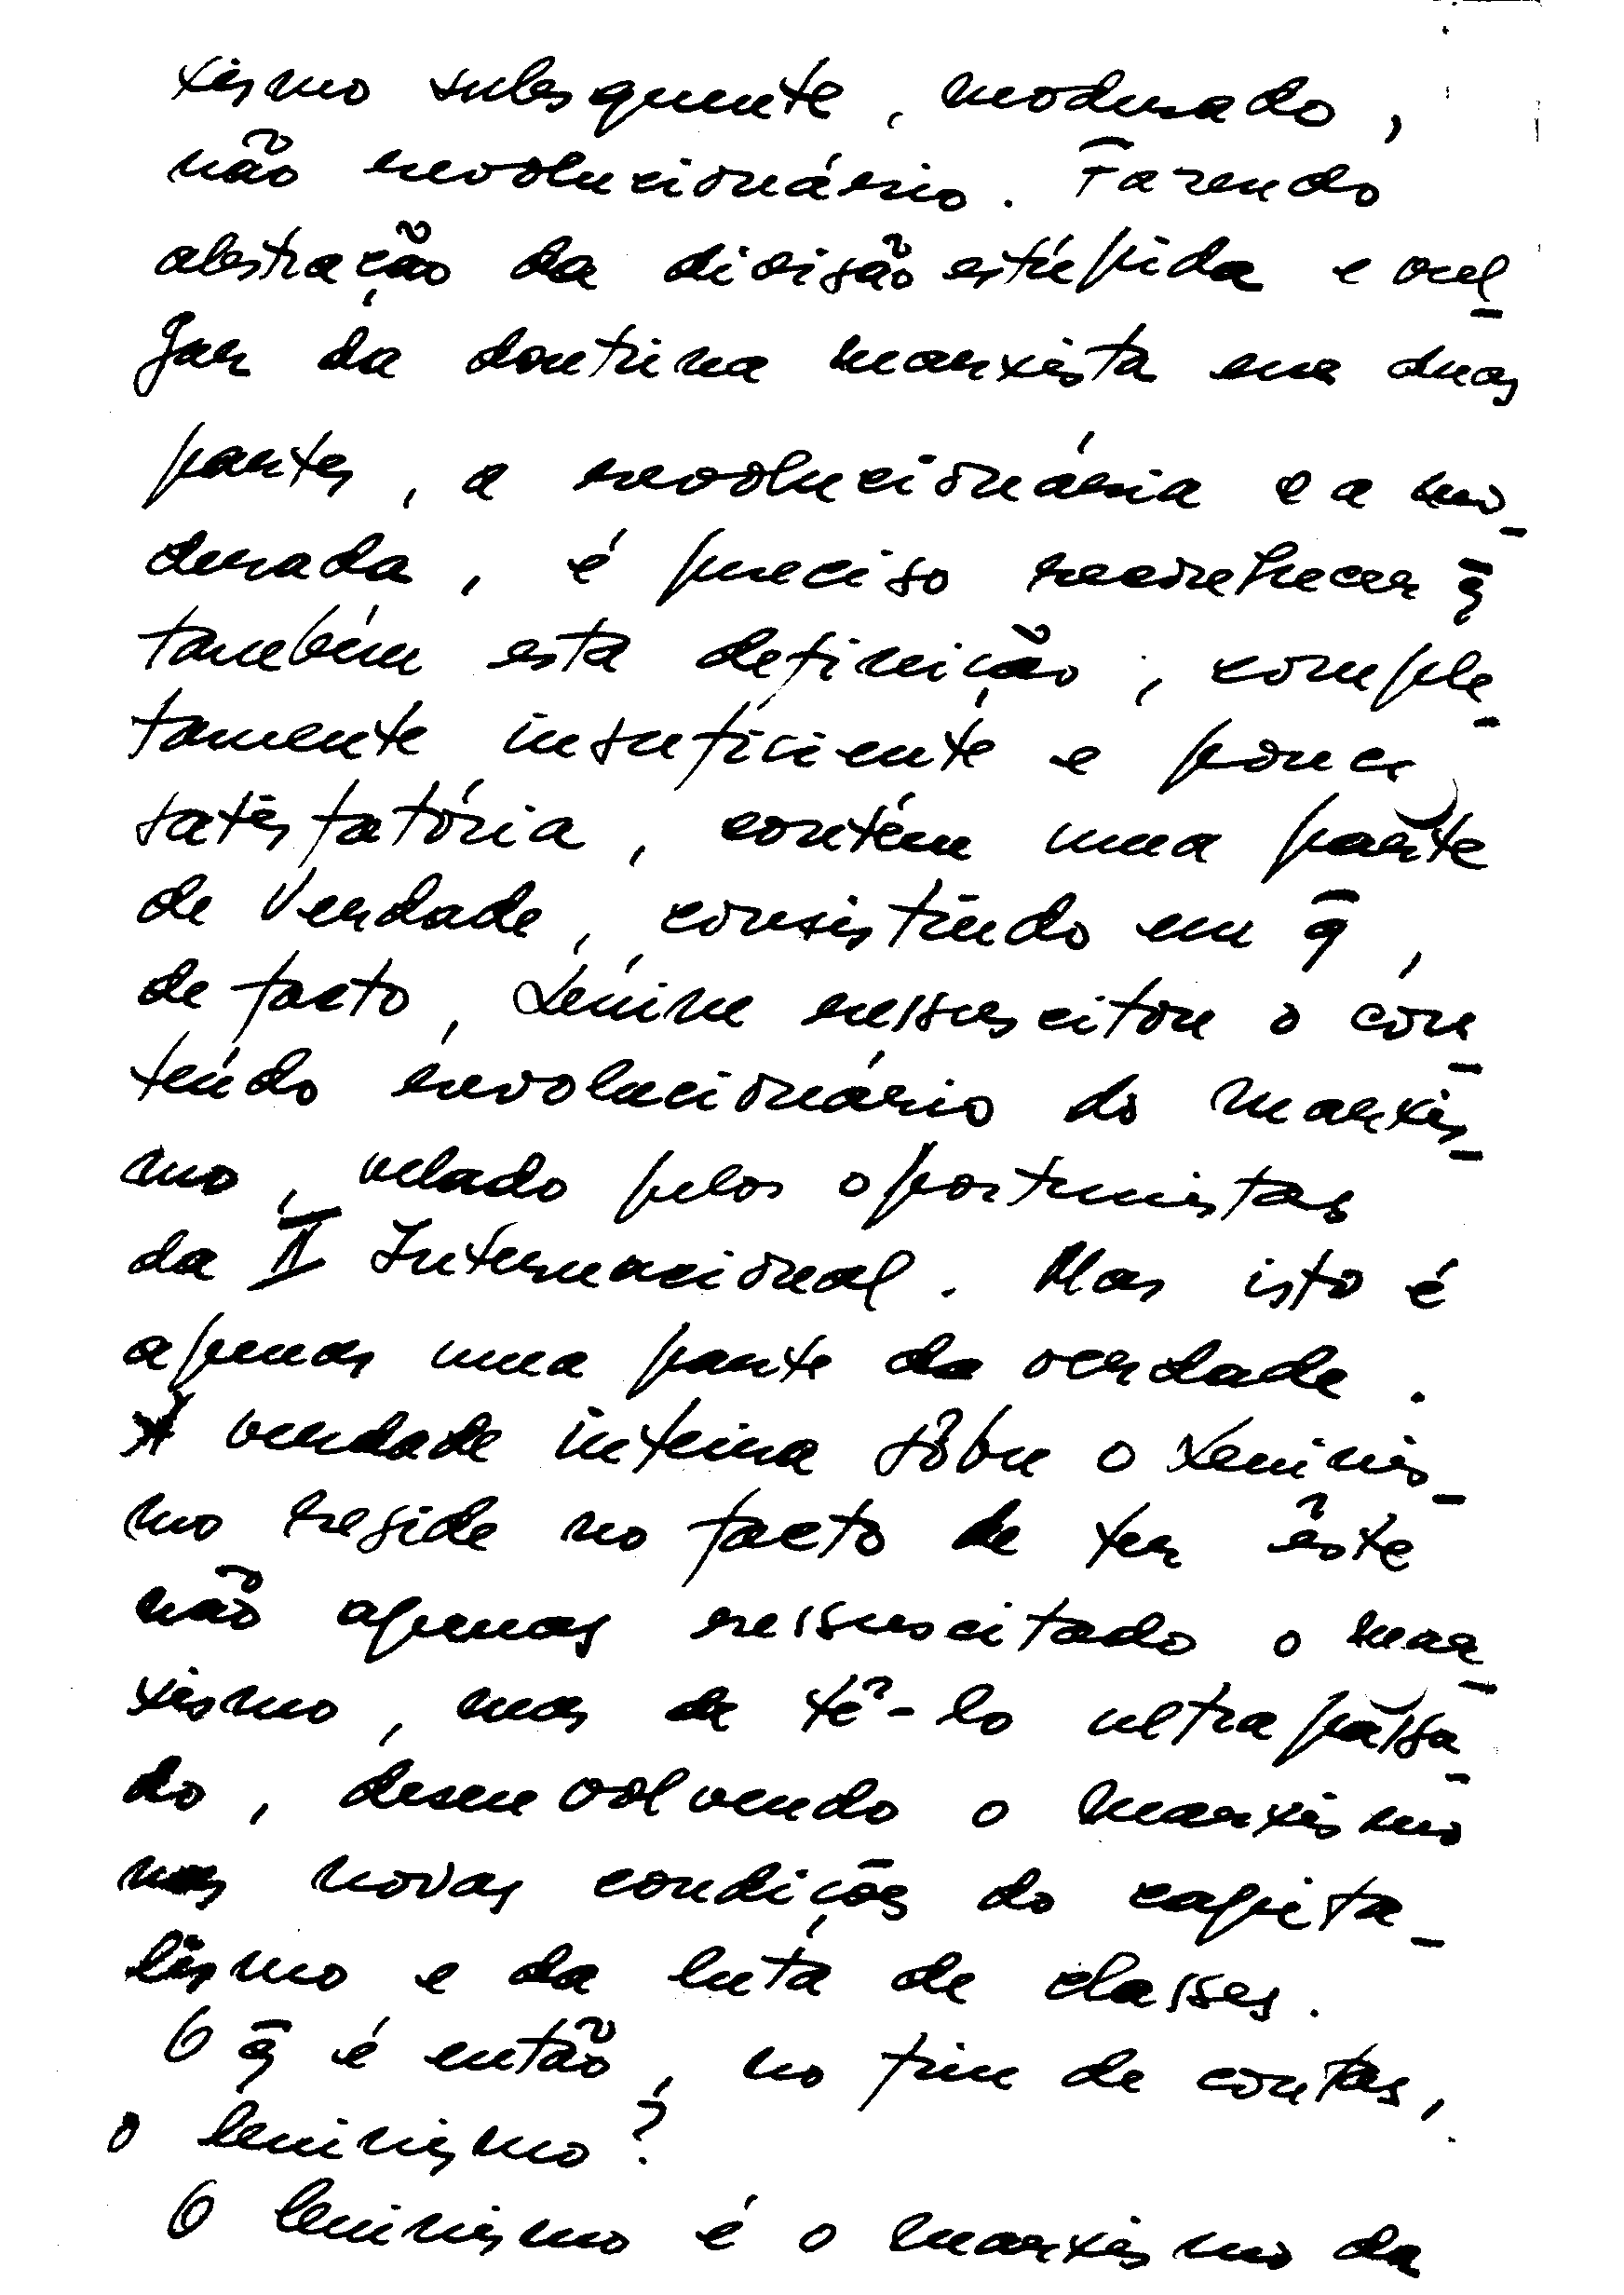 xismo subsquente, moderado,
não revolucionário. Fazendo
abstração da divisão estúpida e vul-
gar da doutrina marxista em duas
partes, a revolucionária e a mo-
derada, é preciso reconhecer q̄
também esta definição, comple-
tamente insuficiente e pouco
satisfatória, contém uma parte
de verdade, consistindo em q̄,
de facto, Lénine ressuscitou o con-
teúdo revolucionário do marxis-
mo, velado pelos oportunistas
da II Internacional. Mas isto é
apenas uma parte da verdade.
A verdade inteira sôbre o Leninis-
mo reside no facto de ter êste
não apenas ressuscitado o mar-
xismo, mas de tê-lo ultrapassa-
do, desenvolvendo o marxismo
nas novas condições do capita-
lismo e da luta de classes.
O q̄ é então, no fim de contas,
o leninismo?
O leninismo é o marxismo da